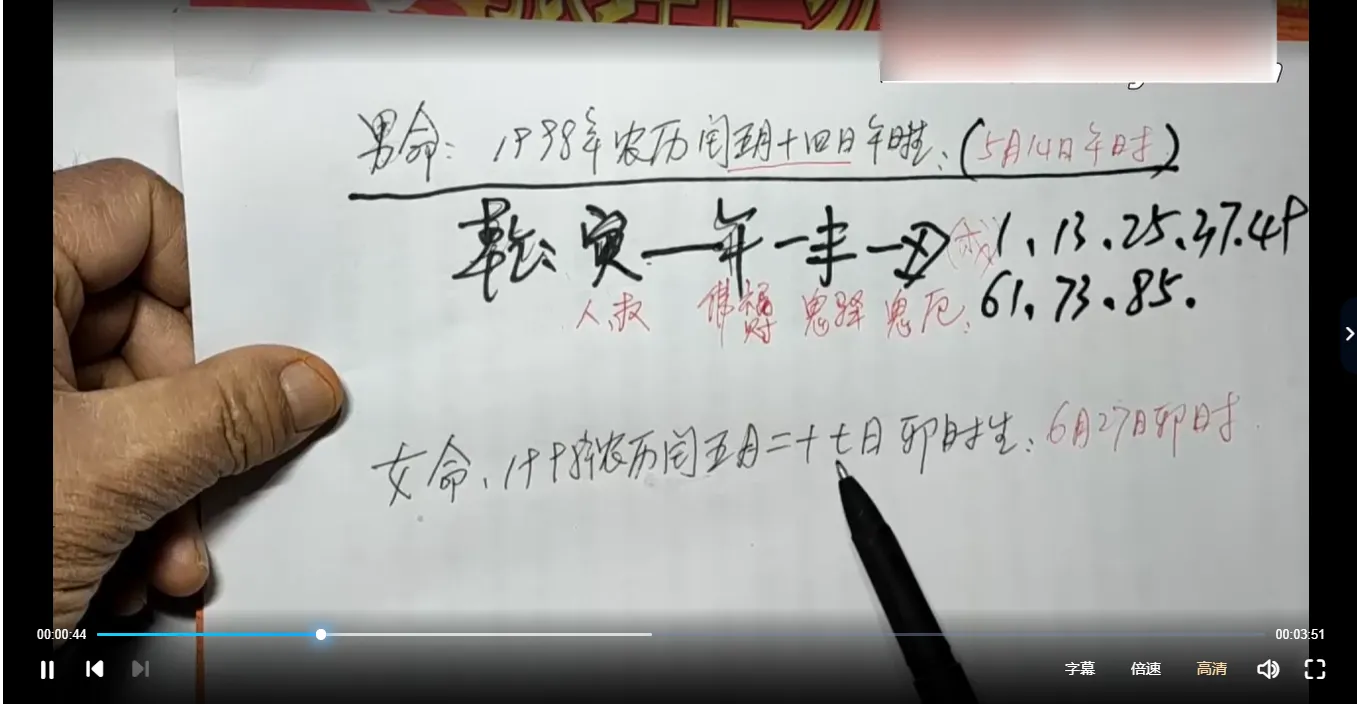 男命：1998年农历闰五月十四日午时生：（5月14日午时）
乾：寅—午—丰—丑 1.13.25.37.49
人权 佛福财 鬼驿 鬼厄： 61.73.85.
女命、1998年农历闰五月二十七日卯时生：6月27日卯时.
00:00:44
00:03:51
字幕 倍速 高清